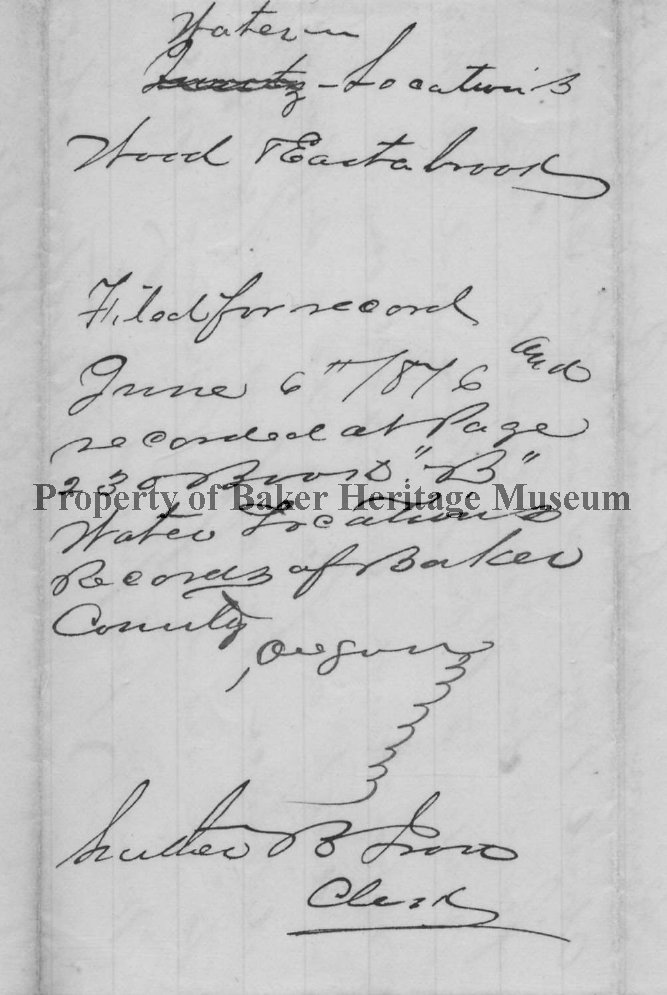 Water
Quartz - Locations
Wood & Eastabrook
Filed for record
June 6th 1876 and
recorded at Page
230 Book "B"
Property of Baker Heritage Museum
Water Locations
Records of Baker
County
, Oregon
Luther B Ison
Clerk